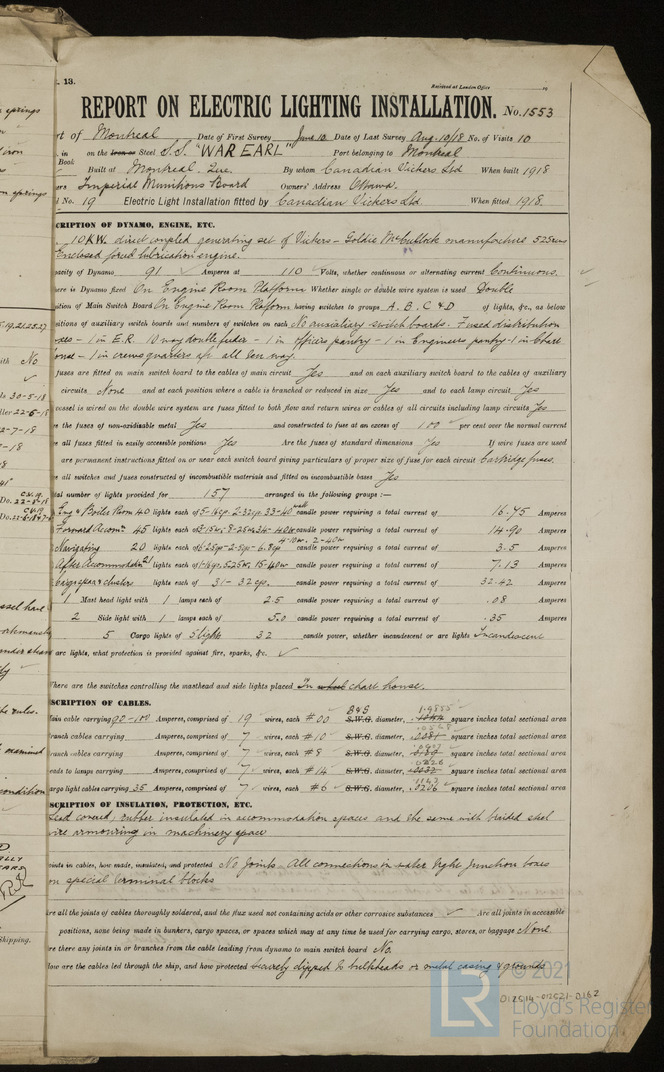 13.
Received at London Office
REPORT ON ELECTRIC LIGHTING INSTALLATION. No. 1553
rt of Montreal Date of First Survey June 10 Date of Last Survey Aug. 10/18 No. of Visits 10
in Book on the Iron or Steel S.S. "WAR EARL" Port belonging to Montreal
Built at Montreal, Que. By whom Canadian Vickers Ltd When built 1918
ers Imperial Munitions Board Owners' Address Ottawa.
No. 19 Electric Light Installation fitted by Canadian Vickers Ltd When fitted 1918.
SCRIPTION OF DYNAMO, ENGINE, ETC.
10 KW. direct coupled generating set of Vickers - Goldie McCullock manufacture 525
Enclosed forced lubrication engine.
pacity of Dynamo 91 Amperes at 110 Volts, whether continuous or alternating current Continuous.
here is Dynamo fixed On Engine Room Platform Whether single or double wire system is used Double
sition of Main Switch Board On Engine Room Platform having switches to groups A. B. C & D of lights, &c., as below
sitions of auxiliary switch boards and numbers of switches on each No auxiliary switch boards. 7 fused distribution
oxes - 1 in E.R. 10 way double feeder - 1 in officers pantry - 1 in Engineers pantry - 1 in Chart
- 1 in crews quarters aft all ten way.
fuses are fitted on main switch board to the cables of main circuit Yes and on each auxiliary switch board to the cables of auxiliary
circuits None and at each position where a cable is branched or reduced in size Yes and to each lamp circuit Yes
vessel is wired on the double wire system are fuses fitted to both flow and return wires or cables of all circuits including lamp circuits Yes
e the fuses of non-oxidizable metal Yes and constructed to fuse at an excess of 100 per cent over the normal current
e all fuses fitted in easily accessible positions Yes Are the fuses of standard dimensions Yes If wire fuses are used
are permanent instructions fitted on or near each switch board giving particulars of proper size of fuse for each circuit Cartridge fuses.
e all switches and fuses constructed of incombustible materials and fitted on incombustible bases Yes
tal number of lights provided for 157 arranged in the following groups :—
Eng & Boiler Room 40 lights each of 5-16cp. 2-32cp. 33-40 watt candle power requiring a total current of 16.75 Amperes
Forward Accom. 45 lights each of candle power requiring a total current of 14.90 Amperes
4-10w. 2-40w
Navigating 20 lights each of 6-25cp-2-5cp-6.8cp candle power requiring a total current of 3.5 Amperes
After Accommodatn 21 lights each of 15-40w candle power requiring a total current of 7.13 Amperes
Cargo & clusters lights each of 31- 32cp. candle power requiring a total current of 32.42 Amperes
1 Mast head light with 1 lamps each of 25 candle power requiring a total current of .08 Amperes
2 Side light with 1 lamps each of candle power requiring a total current of .35 Amperes
5 Cargo lights of 5 light 32 candle power, whether incandescent or arc lights Incandescent
arc lights, what protection is provided against fire, sparks, &c. ✓
Where are the switches controlling the masthead and side lights placed In wheel chart house.
SCRIPTION OF CABLES.
B&S
ain cable carrying 90-100 Amperes, comprised of 19 wires, each #00 S.W.G. diameter, square inches total sectional area
ranch cables carrying Amperes, comprised of 7 wires, each #10 S.W.G. diameter, square inches total sectional area
ranch cables carrying Amperes, comprised of 7 wires, each #8 S.W.G. diameter, square inches total sectional area
eads to lamps carrying Amperes, comprised of 7 wires, each #14 S.W.G. diameter, square inches total sectional area
argo light cables carrying 35 Amperes, comprised of 7 wires, each #6 S.W.G. diameter, square inches total sectional area
SCRIPTION OF INSULATION, PROTECTION, ETC.
Lead covered, rubber insulated in accommodation spaces and the same with braided steel
wire armouring in machinery space
oints in cables, how made, insulated, and protected No Joints. All connections in water tight junction boxes
on special terminal blocks
re all the joints of cables thoroughly soldered, and the flux used not containing acids or other corrosive substances ✓ Are all joints in accessible
positions, none being made in bunkers, cargo spaces, or spaces which may at any time be used for carrying cargo, stores, or baggage None.
re there any joints in or branches from the cable leading from dynamo to main switch board No.
How are the cables led through the ship, and how protected Securely clipped to bulkheads or metal casing & grounds
© 2021
Lloyd's Register
Foundation
LR
012514-012521-0162